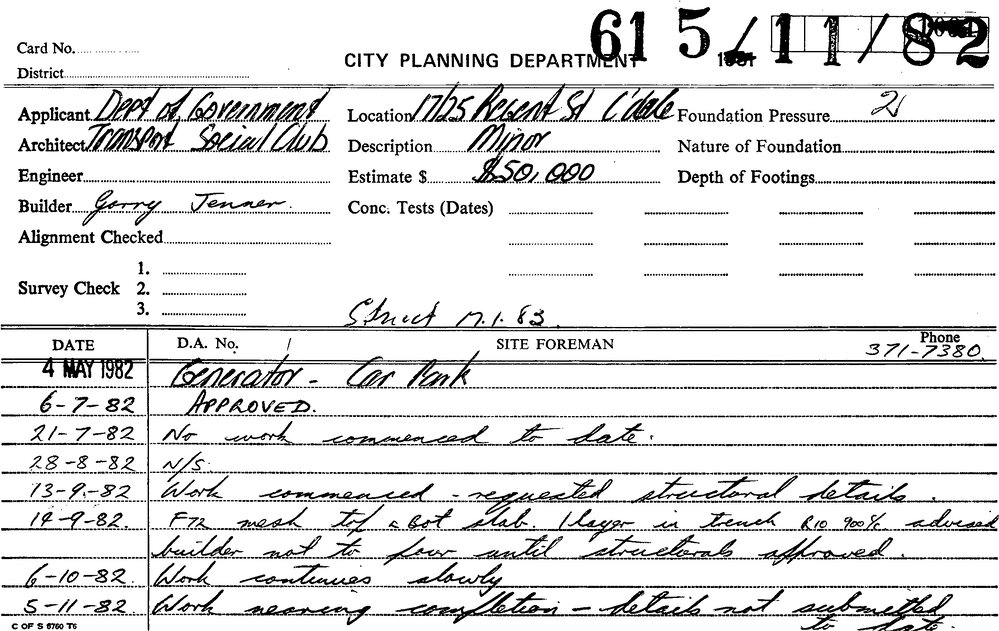 615/11/82
Card No.
CITY PLANNING DEPARTMENT
District
Applicant Dept of Government Location 17/25 Regent St C'dale Foundation Pressure
Architect Transport Social Club Description Minor Nature of Foundation
Engineer Estimate $ $50,000 Depth of Footings
Builder Garry Jenner. Conc. Tests (Dates)
Alignment Checked
1.
Survey Check 2.
3.
Struct 17.1.83.
DATE D.A. No. SITE FOREMAN Phone
371-7380.
4 MAY 1982 Generator - Car Park
6-7-82 APPROVED.
21-7-82 No work commenced to date.
28-8-82 N/S.
13-9-82 Work commenced - requested structural details.
14-9-82. F72 mesh top & Bot slab. 1 layer in trench R10 900 c/c advised
builder not to pour until structurals approved.
6-10-82. Work continues slowly
5-11-82. Work nearing completion - details not submitted
to date.
C OF S 6760 T6